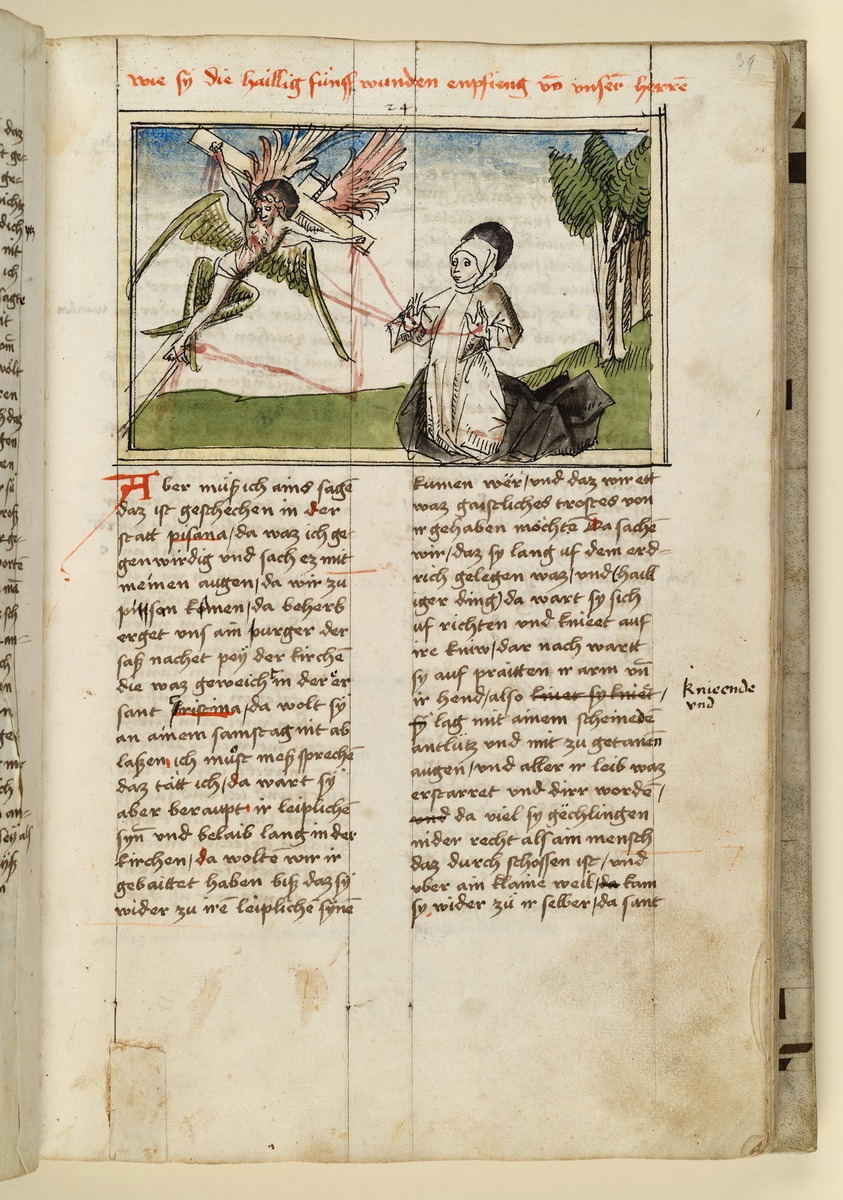 39
wie sy die haillig fünff wunden enpfieng vō vnser̄ herrē
24
Aber müß ich ains sagē
daz ist geschechen in der
statt pisana / da waz ich ge-
genwirdig vnd sach ez mit
meinen augen / da wir zu
komen / da beherb
erget vns ain purger der
saß nachet pey der kirchē
die waz geweicht in der er
sant Cristina / da wolt sy
an ainem samstag nit ab
laßen ich muͦst meß sprechē
daz tätt ich / da wart sy
aber beraupt ir leiplichē
synn̄ vnd belaib lang in der
kirchen / da woltē wir ir
gebaittet haben biß daz sy
wider zu irē leiplichē synē
kumen wër / vnd daz wir ett
waz gaistliches trostes von
ir gehaben möchtē Da sachē
wir / daz sy lang uf dem erd-
rich gelegen waz / vnd (haill
iger ding) da wart sy sich
uf richten vnd knieet auf
ire kniw / dar nach wartt
sy auf praitten ir arm vn̄
ir hend / also
lag mit ainem scheinēdē
antlütz vnd mit zu getanēn
augen / vnd aller ir leib waz
erstarret vnd dirr worden /
vnd da viel sy gëchlingen
nider recht als ain mensch
daz durch schossen ist / vnd
vber ain klaine weil / da kam
sy wider zu ir selber / da sant
knieende
vnd